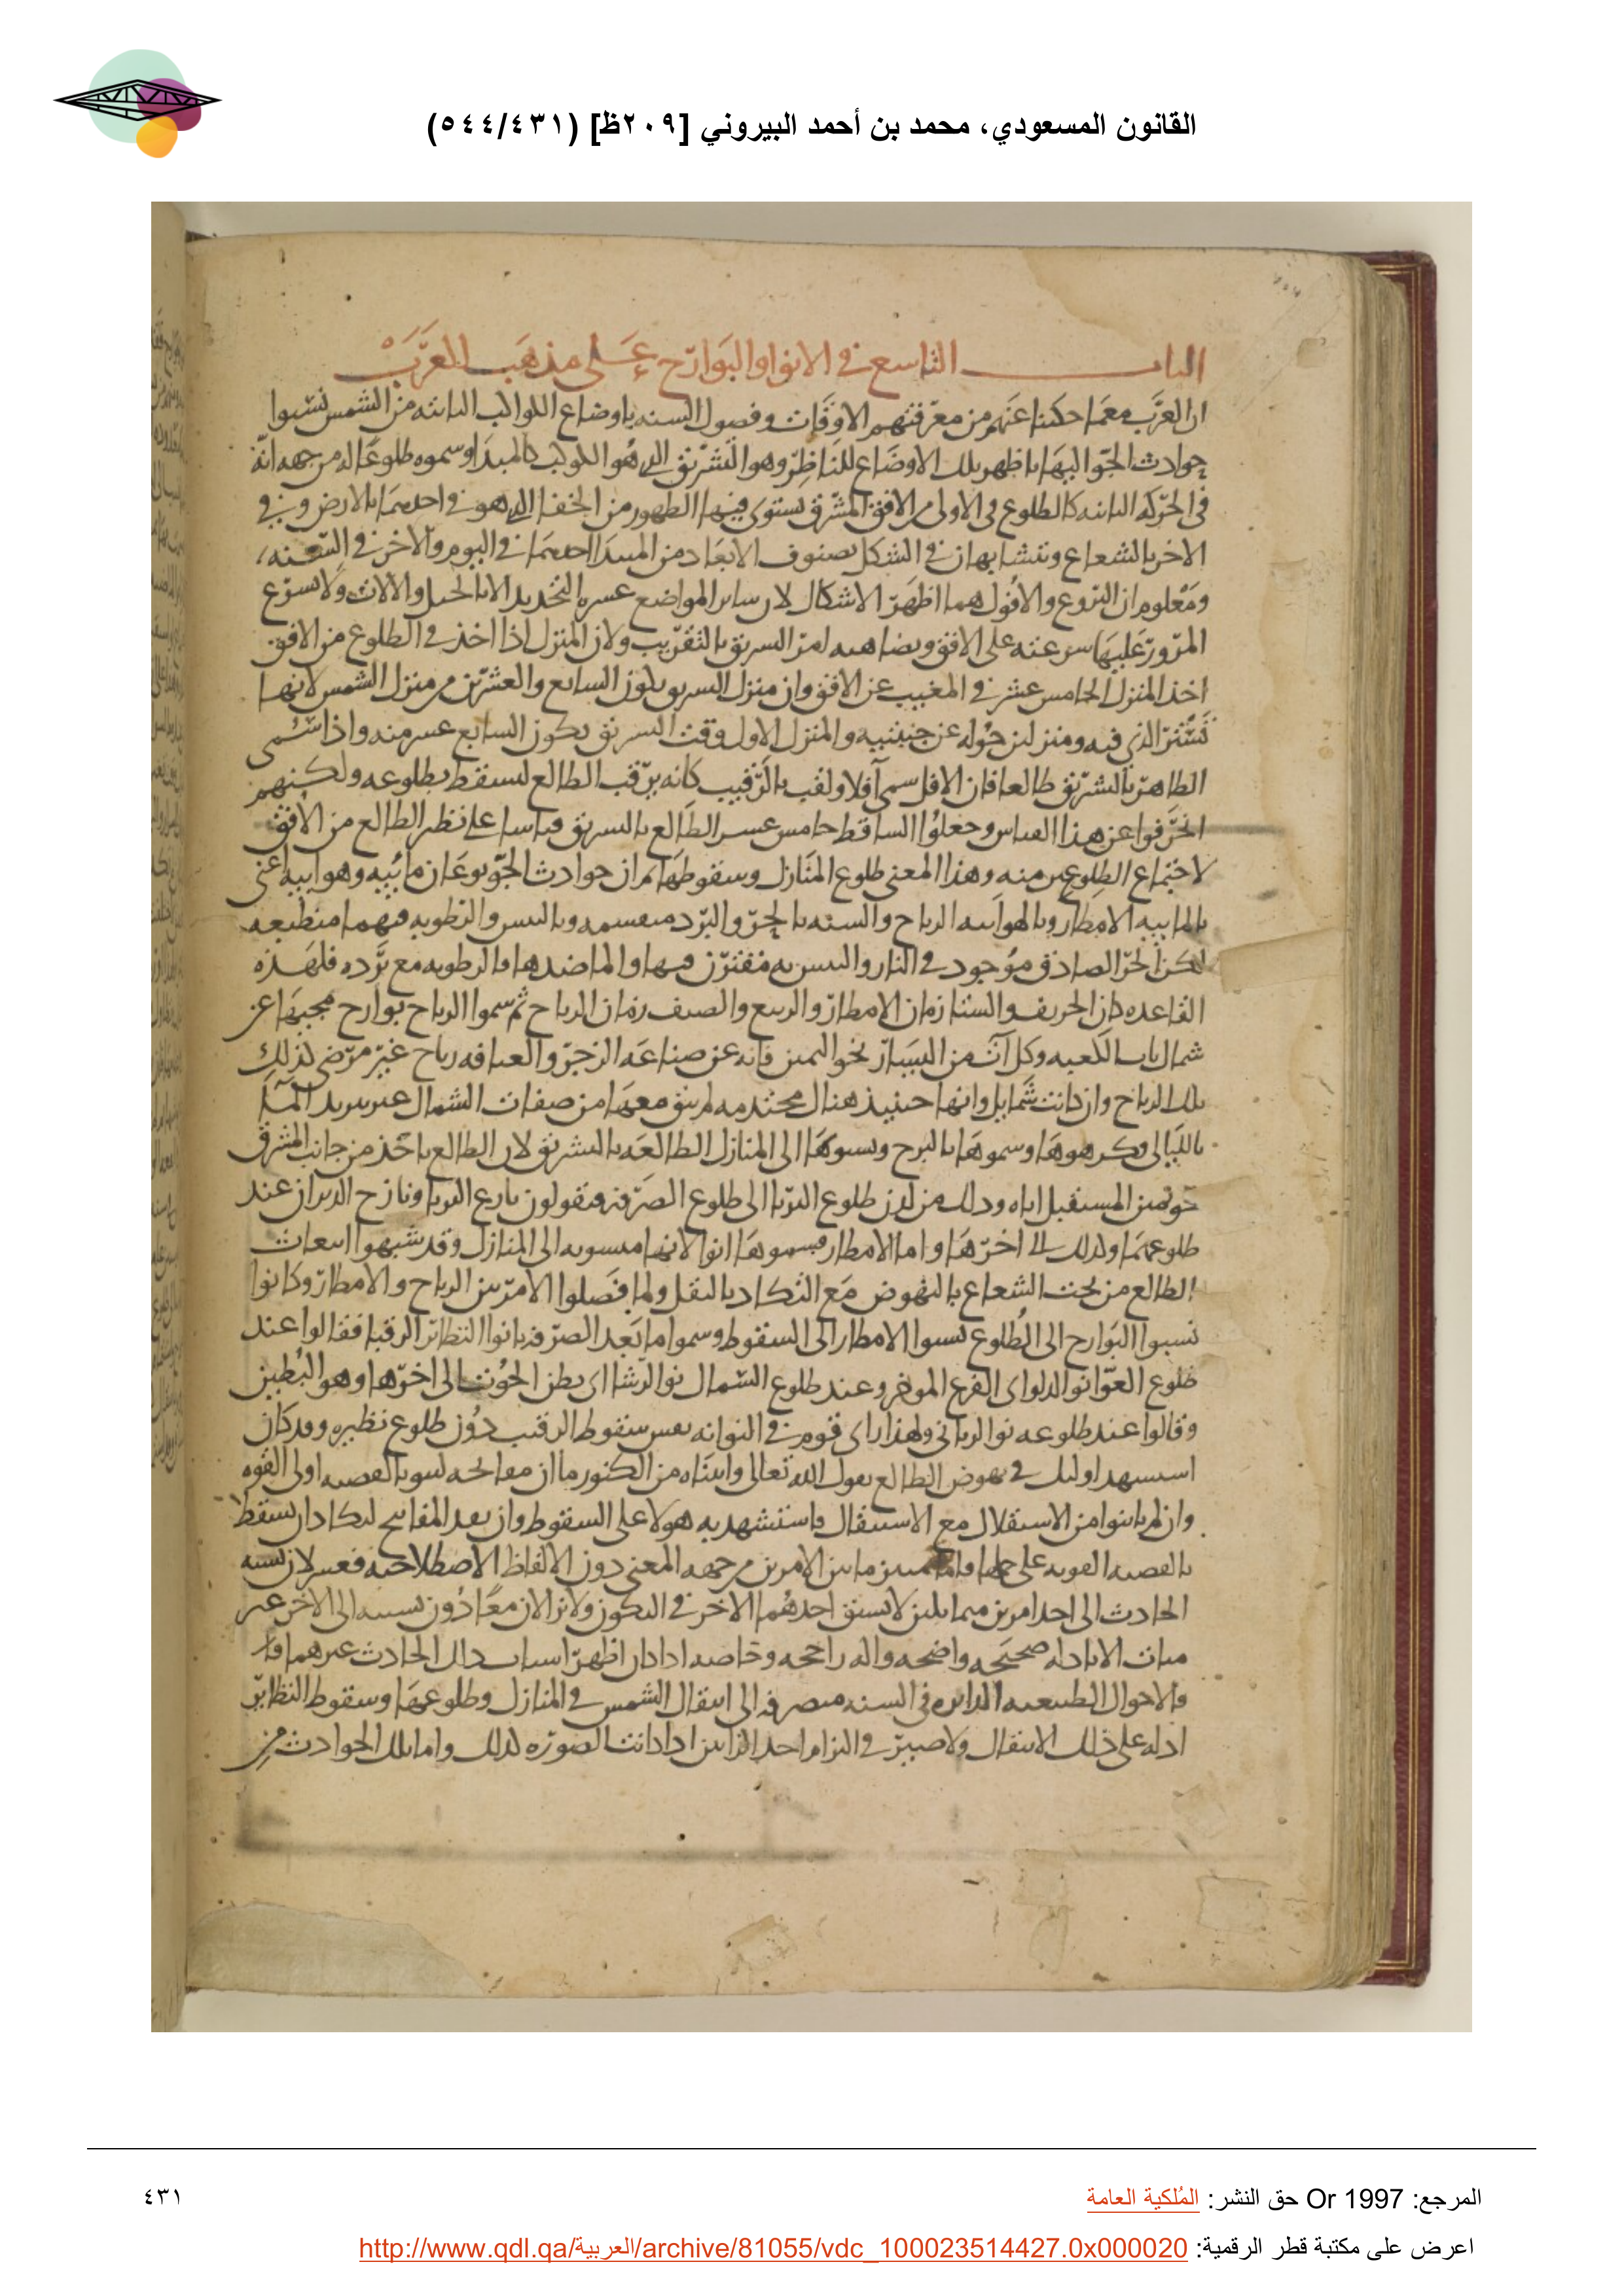 القانون المسعودي، محمد بن أحمد البيروني [٢٠٩ظ] (٥٤٤/٤٣١)
الباب التاسع في الانوا والبوارح على مذهب العرب
ان العرب مع ما حكينا عنهم من معرفتهم الاوقات وفصول السنه باوضاع الكواكب الثابته من الشمس نسبوا
حوادث الجو اليها باظهر تلك الاوضاع للناظر وهو التشريق الذي هو للكوكب كالمبدا وسموه طلوعا له من جهه انه
في الحركه الثانيه كالطلوع في الاولى من الافق المشرق يستوي فيها الظهور من الخفا الذي هو في احدهما بالارض وفي
الاخر بالشعاع وتتشابهان في الشكل بصنوف الابعاد من المبدا احدهما في اليوم والاخر في السنه
ومعلوم ان البزوغ والافول هما اظهر الاشكال لان ساير المواضع عسره التحديد الا بالحيل والالات ولا يسرع
المرور عليها سرعته على الافق ويضاهيه امر التشريق بالتقريب ولان المنزل اذا اخذ في الطلوع من الافق
اخذ المنزل الخامس عشر في المغيب عن الافق وان منزل التشريق يكون السابع والعشرين من منزل الشمس لانها
تستر الذي فيه ومنزلين حوله عن جنبيه والمنزل الاول وقت التشريق يكون السابع عشر منه واذا سمى
الظاهر بالتشريق طالعا فان الافل سمى آفلا ولقب بالرقيب كانه يرقب الطالع ليسقط بطلوعه ولكنهم
انحرفوا عن هذا القياس وجعلوا الساقط خامس عشر الطالع بالتشريق قياسا على نظير الطالع من الافق
لاجتماع الطلوعين منه وهذا المعنى طلوع المنازل وسقوطها ثم ان حوادث الجو نوعان مائيه وهوائيه اعني
بالمائيه الامطار وبالهوائيه الرياح والسنه بالحر والبرد منقسمه وباليبس والرطوبه فيهما منطبعه
لكن الحر الصادق موجود في النار واليبس به مقترن فيها والما ضدها والرطوبه مع برده فلهذه
القاعده كان الخريف والشتا زمان الامطار والربيع والصيف زمان الرياح ثم سموا الرياح بوارح لمجيها عن
شمال باب الكعبه وكل آت من اليسار نحو اليمين فانه عن صناعه الزجر والعيافه رياح غير مرضي لذلك
تلك الرياح وان كانت شمايل وانها حينيذ هنال محتدمه لم يبق معها من صفات الشمال غير تبريد الما
بالليالي وكرهوها وسموها بالبرح ونسبوها الى المنازل الطالعه بالتشريق لان الطالع ياخذ من جانب المشرق
نحو يمين المستقبل اياه وذلك من لدن طلوع الثريا الى طلوع الصرفه فيقولون بارح الثريا وبارح الدبران عند
طلوعهما وكذلك الى اخرها واما الامطار فيسموها انوا لانها منسوبه الى المنازل وقد شبهوا انبعاث
الطالع من تحت الشعاع بالنهوض مع التكاد بالثقل ولما فصلوا الامر بين الرياح والامطار وكانوا
نسبوا البوارح الى الطلوع نسبوا الامطار الى السقوط وسموا ما بعد الصرفه بانوا النظائر الرقبا فقالوا عند
طلوع العوا نو الدلو اي الفرغ الموخر وعند طلوع السماك نو الرشا اي بطن الحوت الى اخرها وهو البطين
وقالوا عند طلوعه نو الزباني ولهذا راى قوم في النو انه نفس سقوط الرقيب دون طلوع نظيره وقد كان
استشهد اوليك في نهوض الطالع بقول الله تعالى واتيناه من الكنوز ما ان مفاتحه لتنو بالعصبه اولي القوه
وان لم ياتوا من الاستقلال مع الاستثقال فاستشهد به هولا على السقوط وان بعد المفاتيح لتكاد ان تسقط
بالعصبه القويه على حملها واما التمييز ما بين الامرين من جهه المعنى دون الالفاظ الاصطلاحيه فعسر لان نسبه
الحادث الى احد امرين متماثلين لا يسبق احدهما الاخر في التكون ولا يزالان معا دون نسبته الى الاخر غير
متات الا بادله صحيحه واضحه واله راجحه وخاصه اذا كان اظهر اسباب ذلك الحادث غيرهما
والاحوال الطبيعيه الدايره في السنه منصرفه الى انتقال الشمس في المنازل وطلوعها وسقوط النظاير
ادله على ذلك الانتقال ولا ضير في التزام احد الرايين اذا كانت الصوره كذلك واما تلك الحوادث من
المرجع: Or 1997 حق النشر: المُلكية العامة
٤٣١
اعرض على مكتبة قطر الرقمية: http://www.qdl.qa/العربية/archive/81055/vdc_100023514427.0x000020